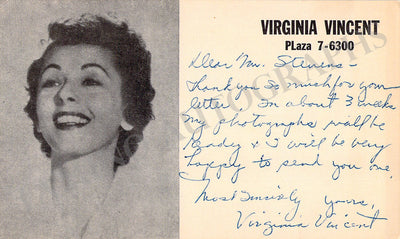 VIRGINIA VINCENT
PLaza 7-6300
Dear Mr. Stevens -
Thank you so much for your
letter. In about 3 weeks
my photographs will be
ready & I will be very
happy to send you one.
Most Sincerely yours,
Virginia Vincent